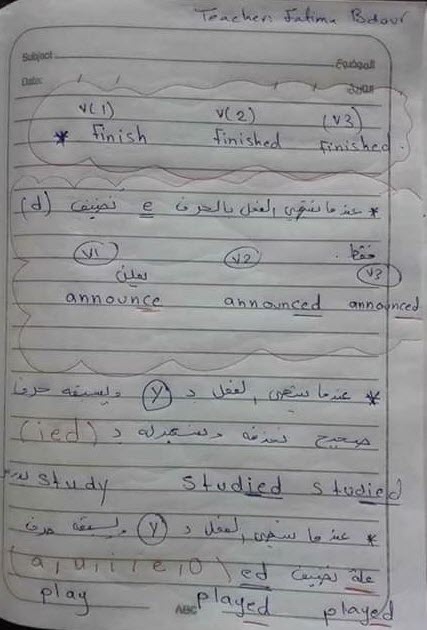 Teacher: Fatima Bdour
Subject الموضوع
Date: / / التاريخ
V(1) V(2) (V3)
* finish finished finished.
* عندما ينتهي الفعل بالحرف e نضيف (d)
فقط.
V1 V2 V3
يعلن
announce announced announced
* عندما ينتهي الفعل بـ (y) ويسبقه حرف
صحيح نحذفه ونستبدله بـ (ied)
study studied studied
* عندما ينتهي الفعل بـ (y) ويسبقه حرف
علة نضيف ed (a, u, i, e, o)
play played played
ABC